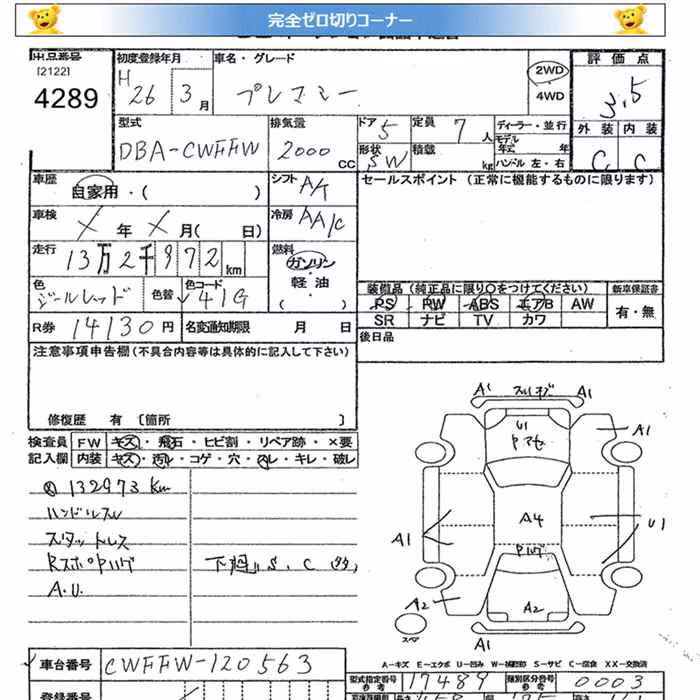 完全ゼロ切りコーナー
出品番号 初度登録年月 車名・グレード 評価点
[2122] H 26 3月 プレマシー 2WD 4WD 3.5
4289
外装 内装
C C
型式 排気量 ドア 5 定員 7人 ディーラー・並行
DBA-CWFFW 2000 CC 形状 SW 積載 kg モデル年式 年
ハンドル 左・右
車歴 自家用・( ) シフト A/T セールスポイント (正常に機能するものに限ります)
車検 X年 X月( 日) 冷房 AA/C
走行 13万2千972km 燃料 ガソリン
軽油
( )
色 ジールレッド 色替 カラーコード 41G
装備品 (純正品に限り○をつけてください) 新車保証書
PS PW ABS エアB AW 有・無
SR ナビ TV カワ
R券 14130円 名変通知期限 月 日 後日品
注意事項申告欄(不具合内容等は具体的に記入して下さい)
修復歴 有 [箇所 ]
検査員 FW キズ・飛石・ヒビ割・リペア跡・×要
記入欄 内装 キズ・汚レ・コゲ・穴・スレ・キレ・破レ
132973km
ハンドルスレ
スタットレス
RスポPハゲ
A.U.
下廻り S.C
A1 スリキズ A1
U1 A1
A1 A4 U1
Pハゲ
A2 A2
スペア A1
A-キズ E-エクボ U-凹み W-補修跡 S-サビ C-腐食 XX-交換済
車台番号 CWFFW-120563
型式指定番号 17489 類別区分番号 0003
参考 参考
登録番号